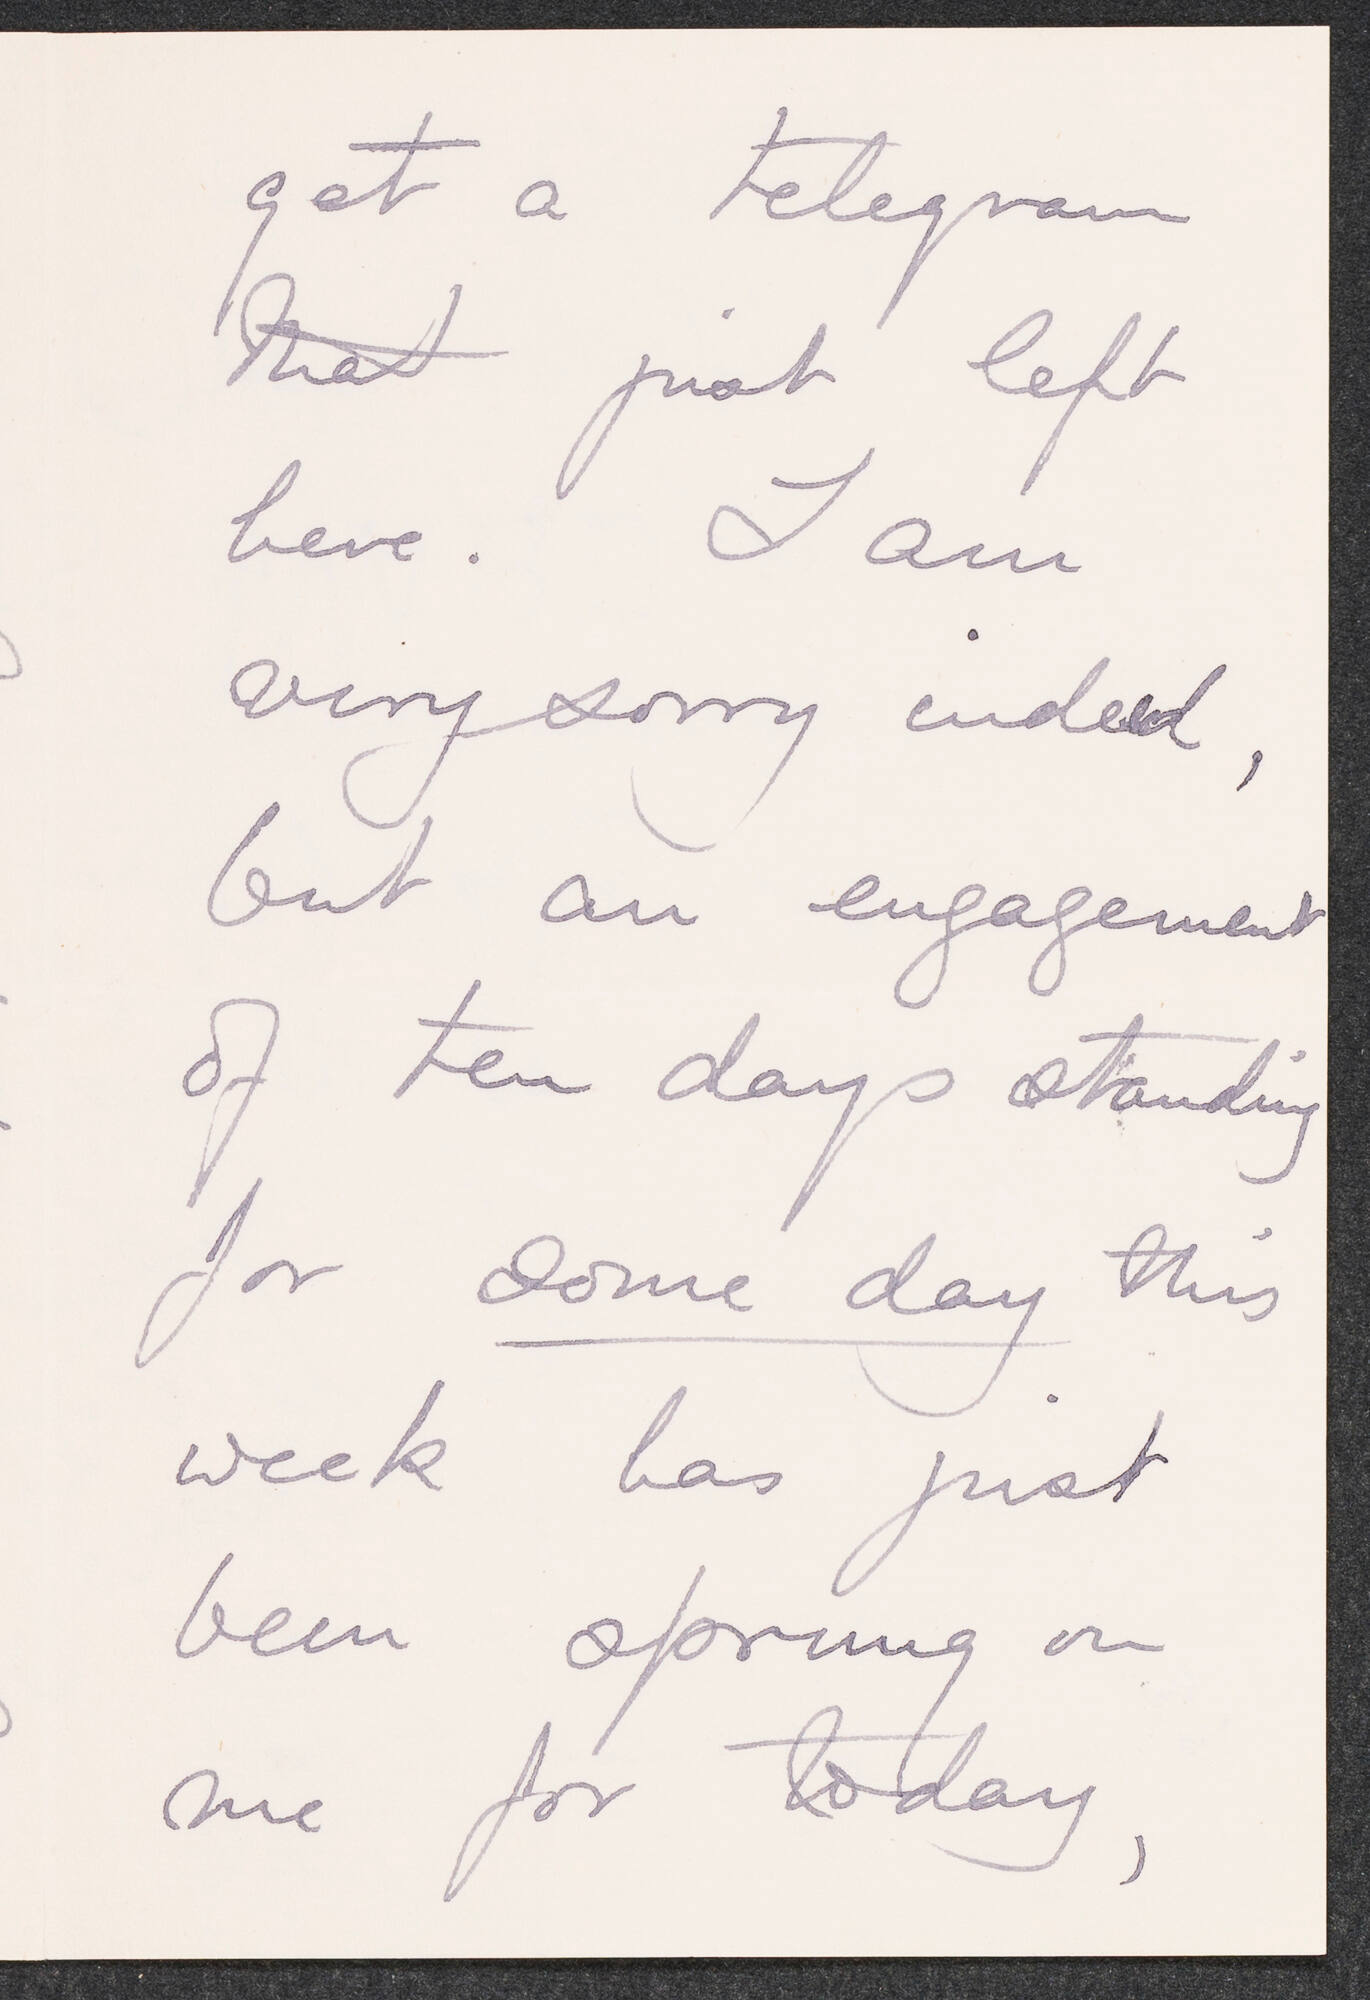 get a telegram
that just left
here. I am
very sorry indeed,
but an engagement
of ten days standing
for some day this
week has just
been sprung on
me for today,